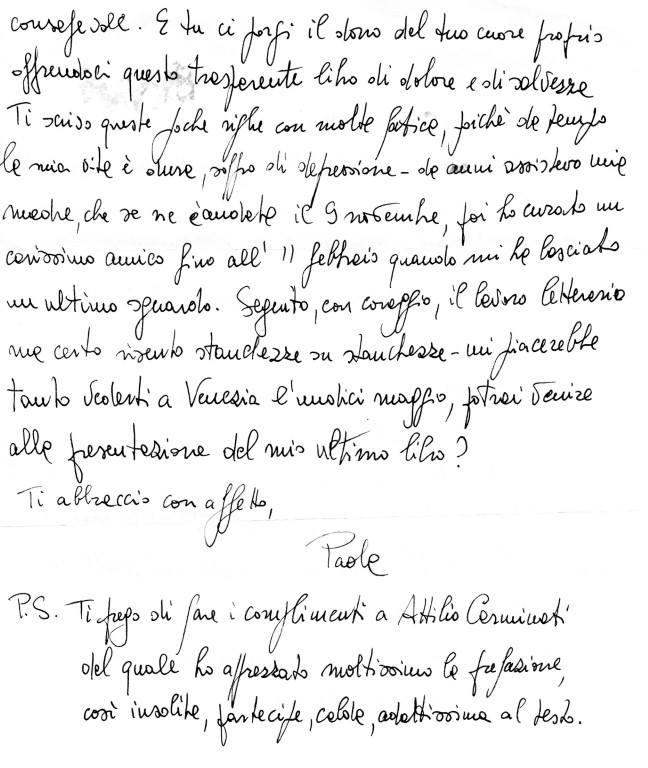 consapevole. E tu ci porgi il dono del tuo cuore proprio
offrendoci questo trasparente libro di dolore e di salvezza
Ti scrivo queste poche righe con molta fatica, poichè da tempo
la mia vita è dura, soffro di depressione - da anni assistevo mia
madre, che se ne è andata il 9 novembre, poi ho curato un
carissimo amico fino all' 11 febbraio quando mi ha lasciato
un ultimo sguardo. Seguito, con coraggio, il lavoro letterario
ma certo risento stanchezze su stanchezze - mi piacerebbe
tanto vederti a Venezia l'undici maggio, potrai venire
alla presentazione del mio ultimo libro?
Ti abbraccio con affetto,
Paola
P.S. Ti prego di fare i complimenti a Attilio Carminati
del quale ho apprezzato moltissimo la prefazione,
così insolita, partecipe, calda, adattissima al testo.